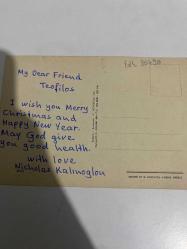 My Dear Friend
Teofilos
I wish you Merry
Christmas and
Happy New Year.
May God give
you good health
with love
Nicholas Kalinoglou